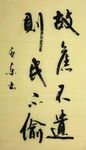 故旧不遗
则民不偷